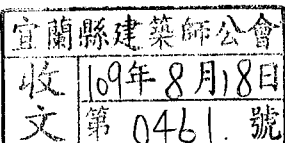 宜蘭縣建築師公會
收文
109年8月18日
第 0461. 號